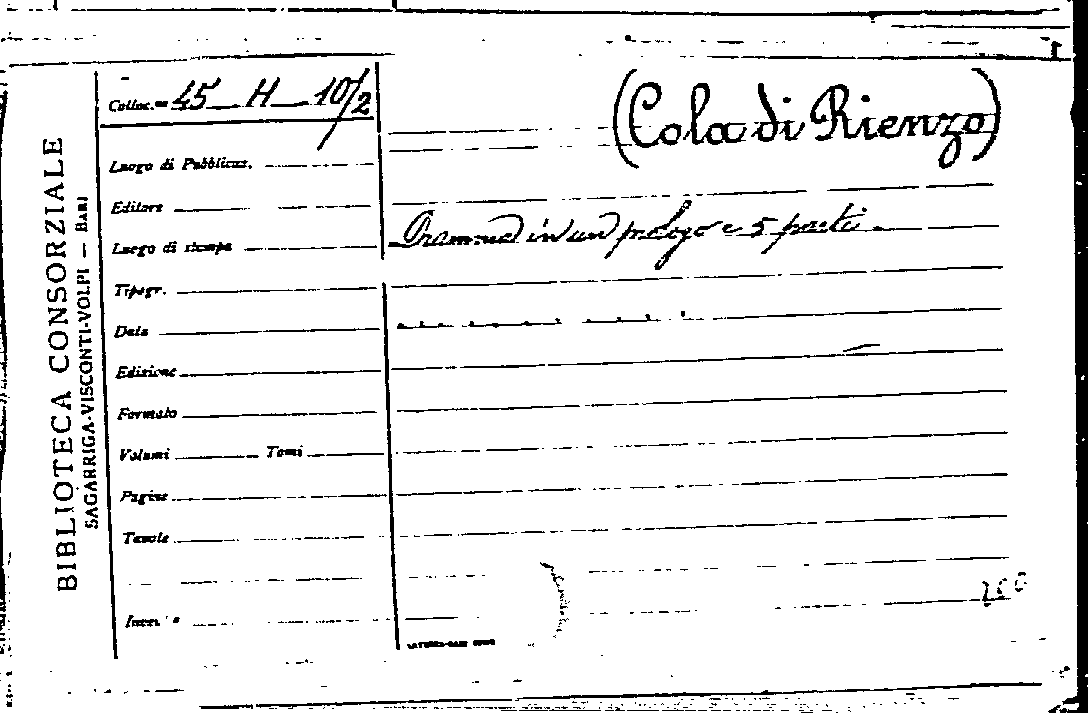 BIBLIOTECA CONSORZIALE
SAGARRIGA-VISCONTI-VOLPI — BARI
Colloc.ne 45 H 10/2
(Cola di Rienzo)
Luogo di Pubblicaz.
Editore
Dramma in un prologo e 5 parti
Luogo di stampa
Tipogr.
Data
Edizione
Formato
Volumi Tomi
Pagine
Tavole